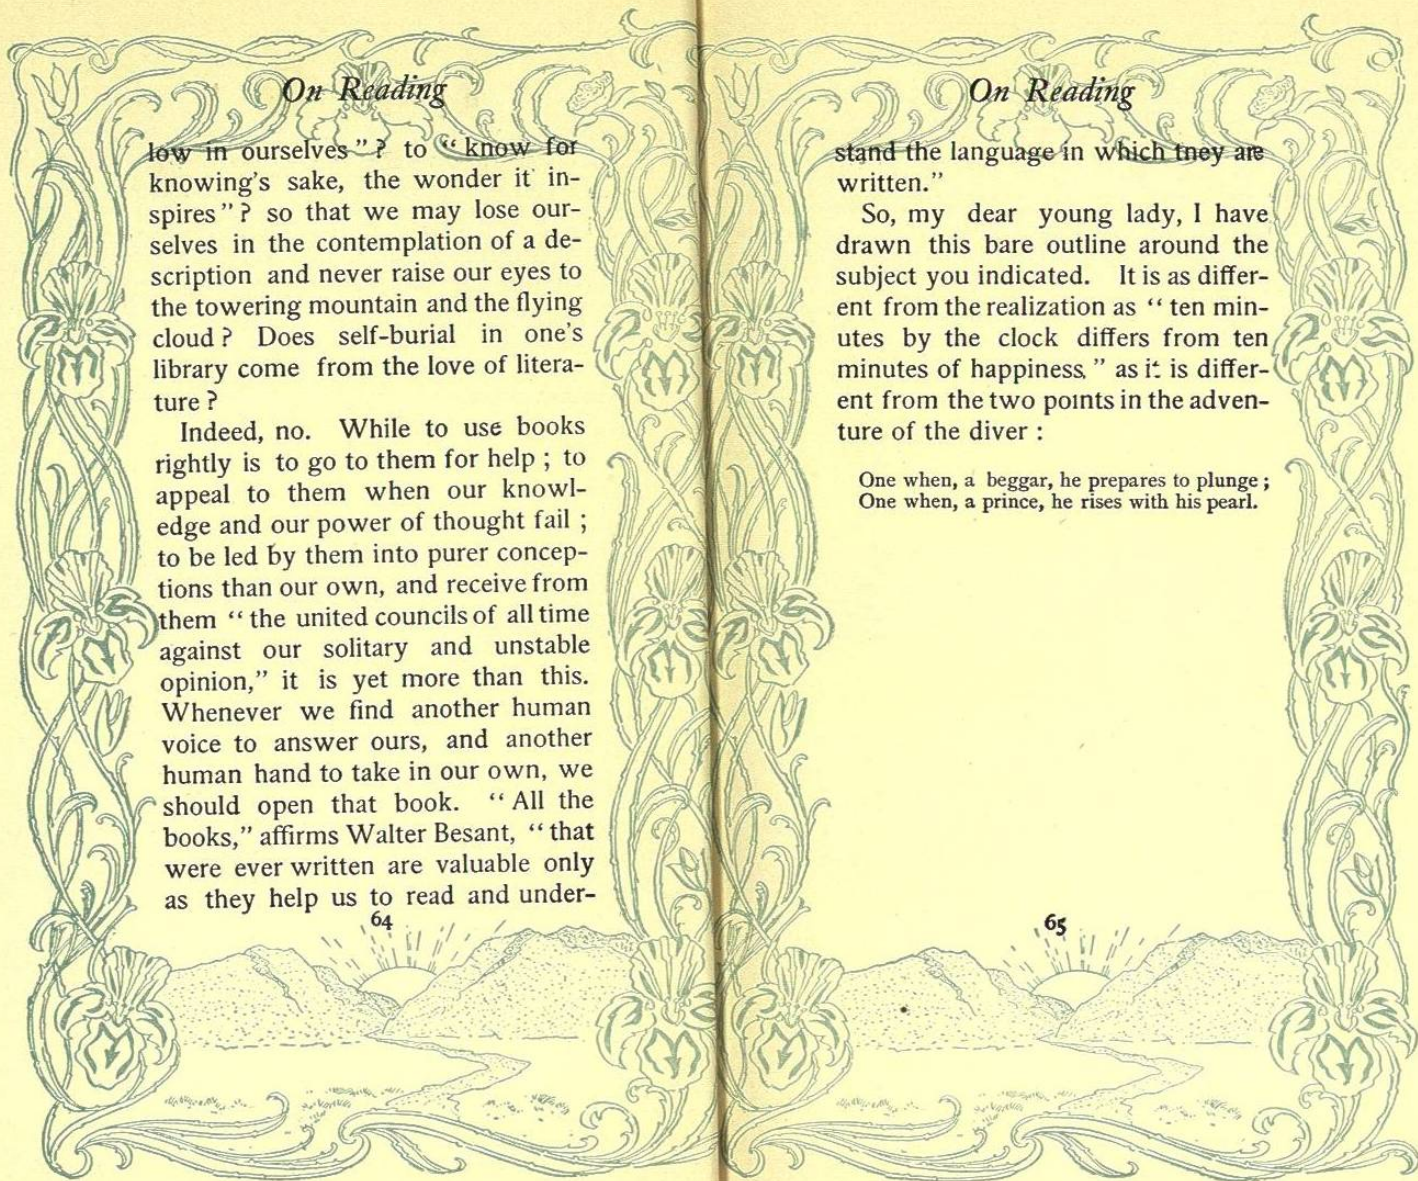 On Reading
low in ourselves”? to “know for
knowing’s sake, the wonder it in-
spires”? so that we may lose our-
selves in the contemplation of a de-
scription and never raise our eyes to
the towering mountain and the flying
cloud? Does self-burial in one’s
library come from the love of litera-
ture?
Indeed, no. While to use books
rightly is to go to them for help; to
appeal to them when our knowl-
edge and our power of thought fail;
to be led by them into purer concep-
tions than our own, and receive from
them “the united councils of all time
against our solitary and unstable
opinion,” it is yet more than this.
Whenever we find another human
voice to answer ours, and another
human hand to take in our own, we
should open that book. “All the
books,” affirms Walter Besant, “that
were ever written are valuable only
as they help us to read and under-
64
On Reading
stand the language in which they are
written.”
So, my dear young lady, I have
drawn this bare outline around the
subject you indicated. It is as differ-
ent from the realization as “ten min-
utes by the clock differs from ten
minutes of happiness,” as it is differ-
ent from the two points in the adven-
ture of the diver:
One when, a beggar, he prepares to plunge;
One when, a prince, he rises with his pearl.
65